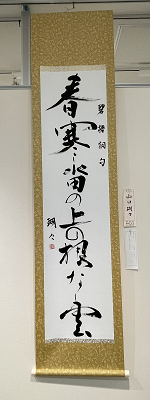 碧梧桐句
春寒し水田の上の根なし雲